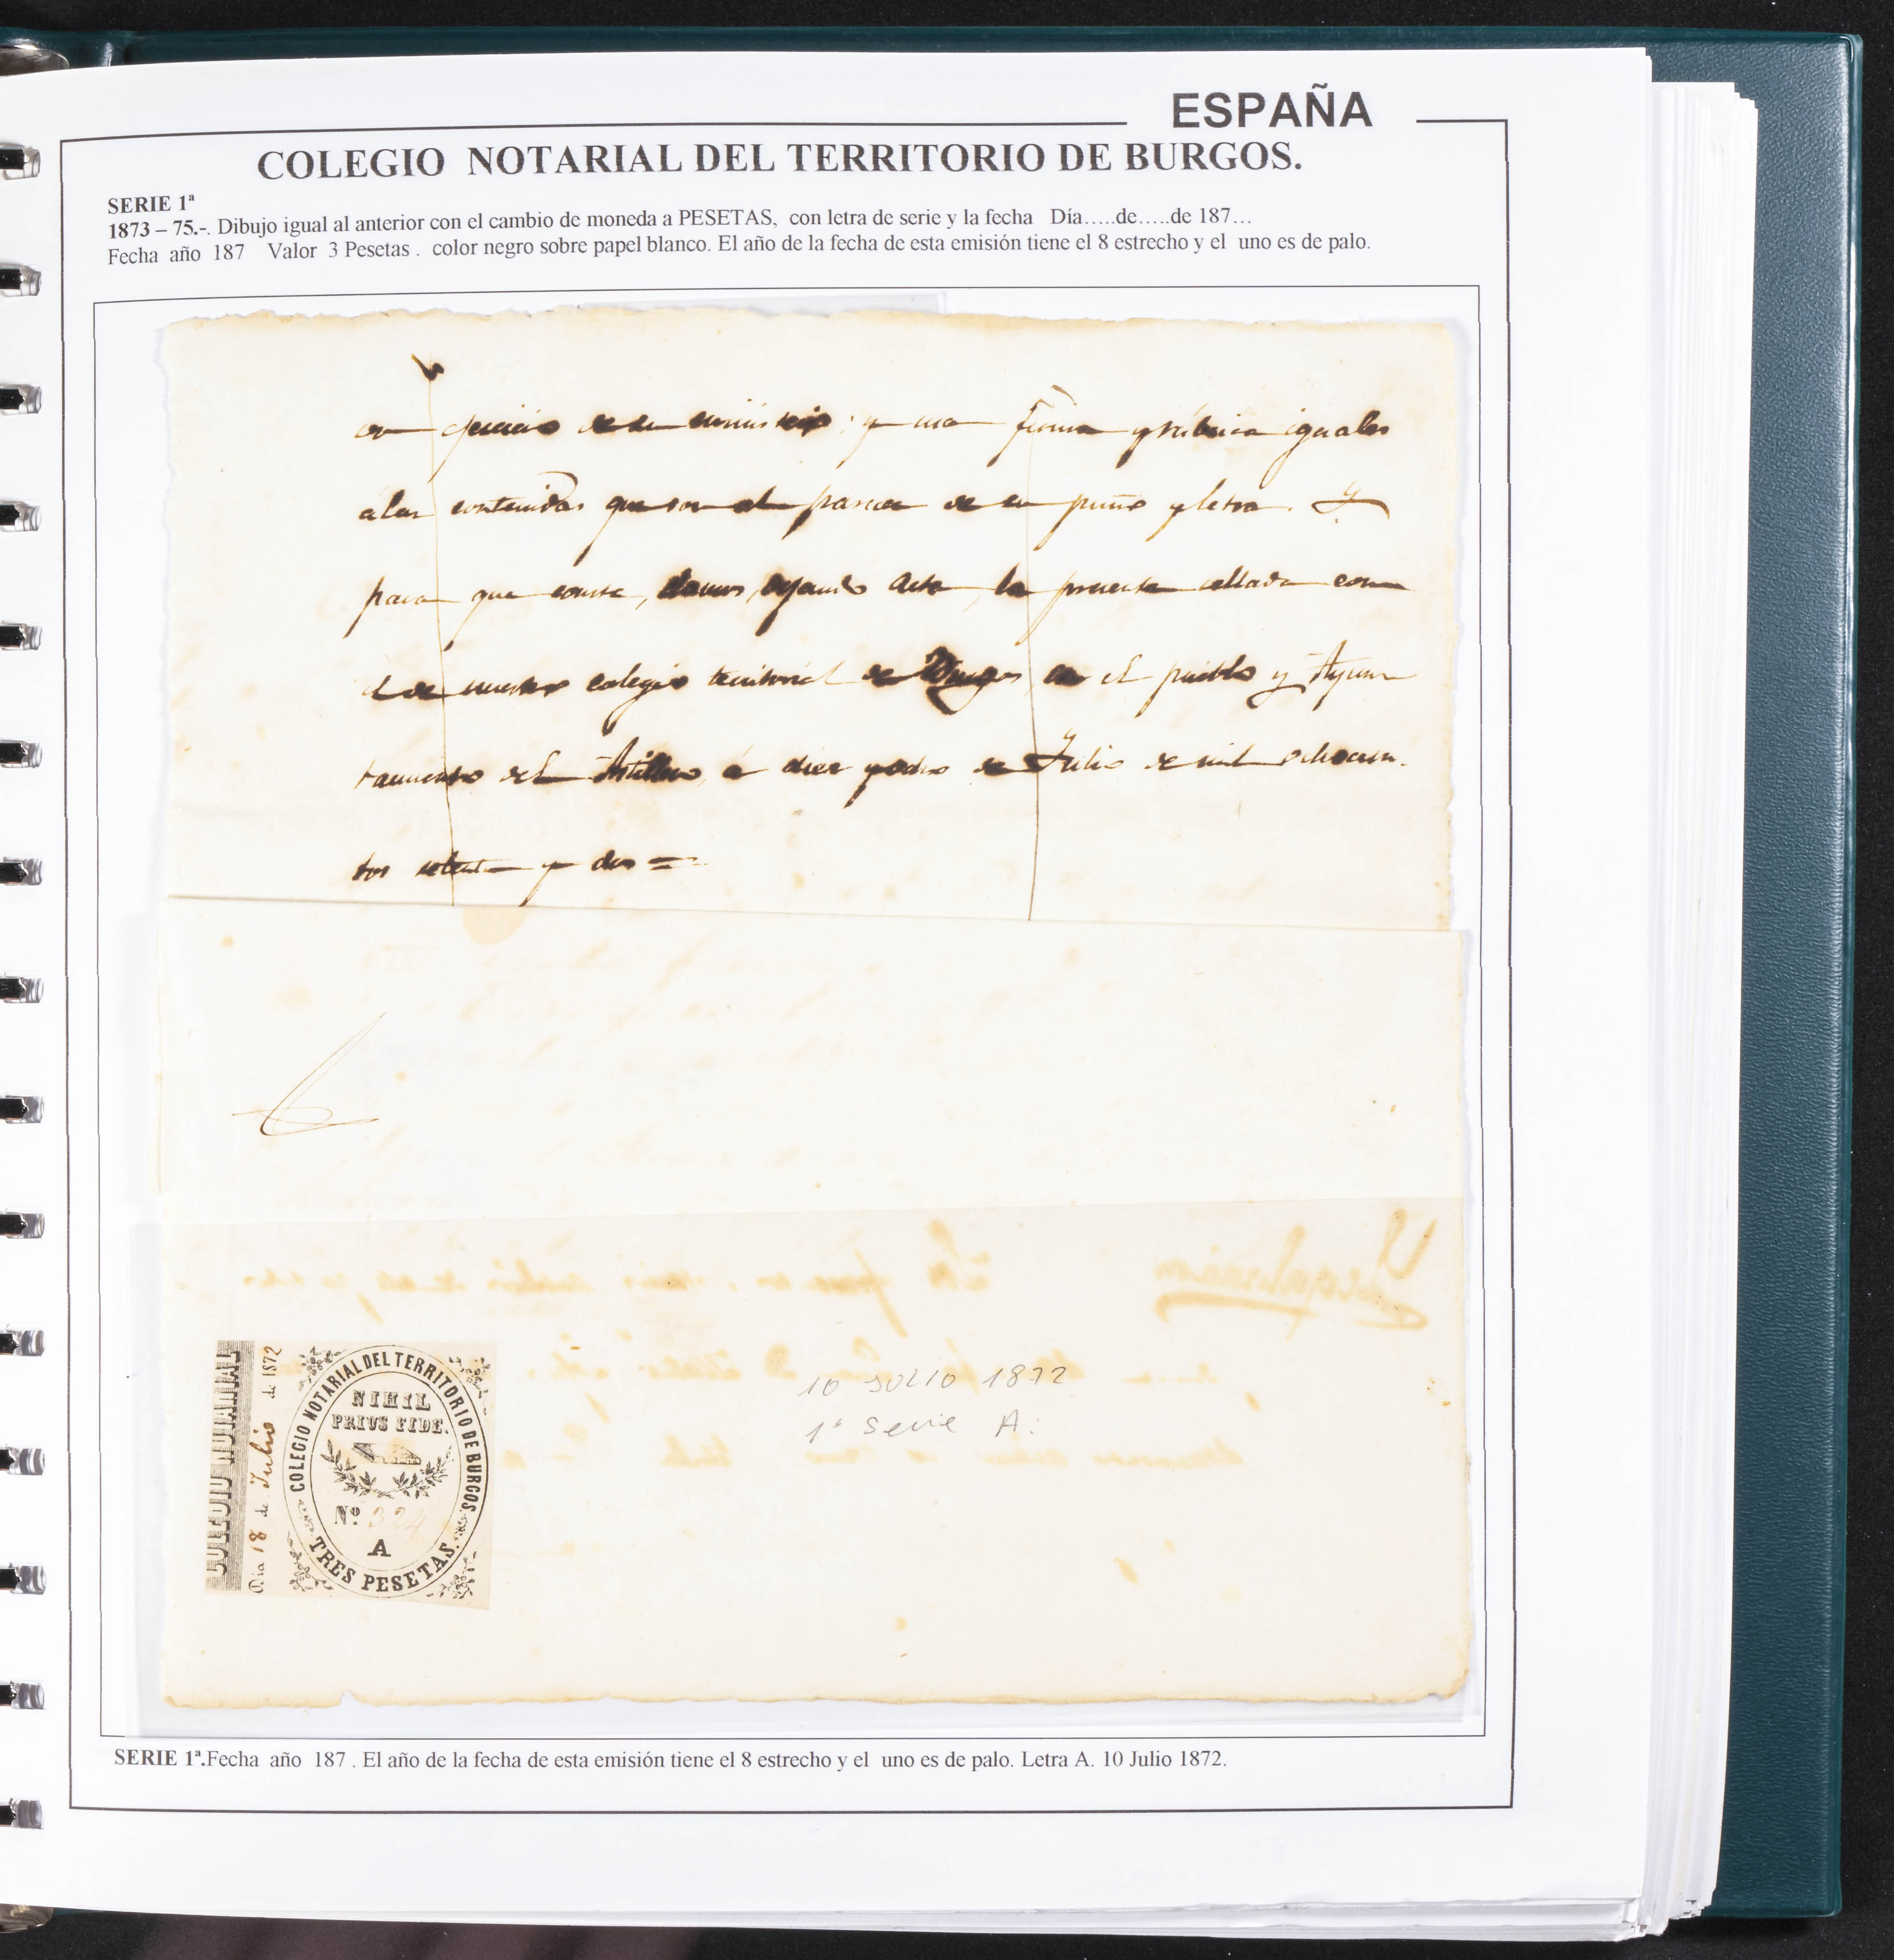 ESPAÑA
COLEGIO NOTARIAL DEL TERRITORIO DE BURGOS.
SERIE 1ª
1873 – 75.-. Dibujo igual al anterior con el cambio de moneda a PESETAS, con letra de serie y la fecha Día.....de.....de 187...
Fecha año 187 Valor 3 Pesetas . color negro sobre papel blanco. El año de la fecha de esta emisión tiene el 8 estrecho y el uno es de palo.
en ejercicio de su ministerio; y una firma y rúbrica iguales
á las contenidas que son al parecer de su puño y letra. Y
para que conste, damos, dejando acta, la presente sellada con
el de nuestro colegio territorial de Burgos, en el pueblo y Ayun
tamiento del Astillero, á diez y ocho de Julio de mil ochocien.
tos setenta y dos =
COLEGIO NOTARIAL
Dia 18 de Julio de 1872
COLEGIO NOTARIAL DEL TERRITORIO DE BURGOS.
NIHIL
PRIUS FIDE.
Nº 324
A
TRES PESETAS.
10 JULIO 1872
1ª Serie A.
SERIE 1ª.Fecha año 187 . El año de la fecha de esta emisión tiene el 8 estrecho y el uno es de palo. Letra A. 10 Julio 1872.